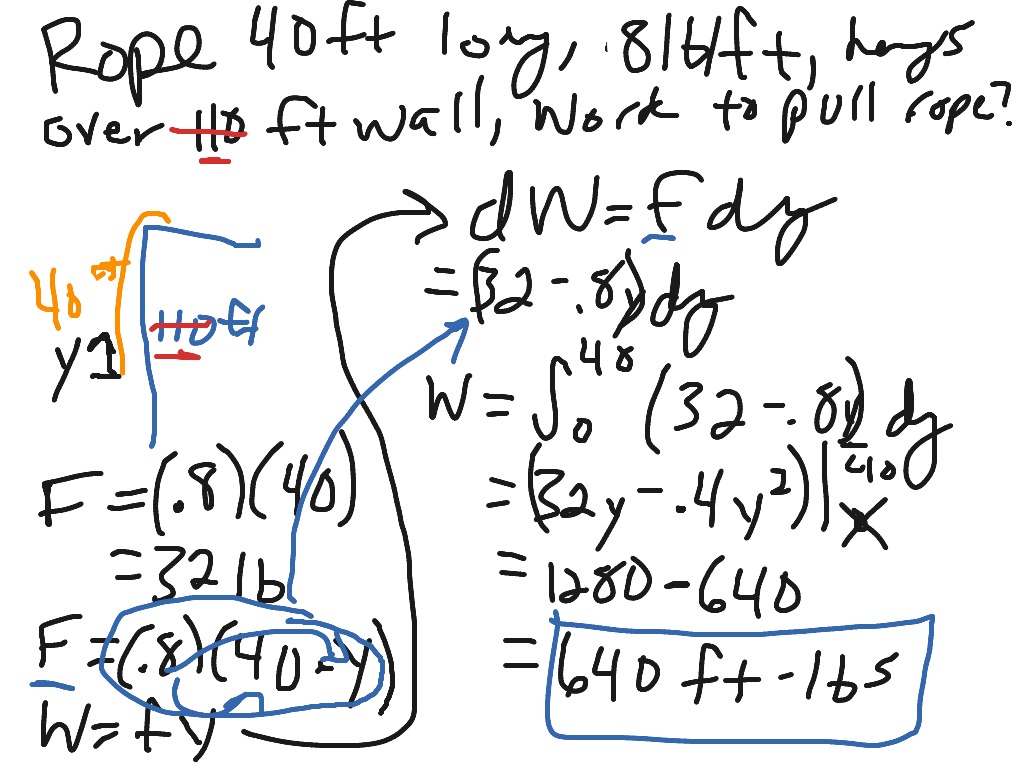 Rope 40ft long, .8lb/ft, hangs
over 110 ft wall, Work to pull rope?
40 ft
110 ft
y
F = (.8)(40)
= 32 lb
F = (.8)(40 - y)
W = fy
dW = f dy
= (32 - .8y) dy
W = ∫₀⁴⁰ (32 - .8y) dy
= (32y - .4y²)|⁴⁰
= 1280 - 640
= 640 ft-lbs